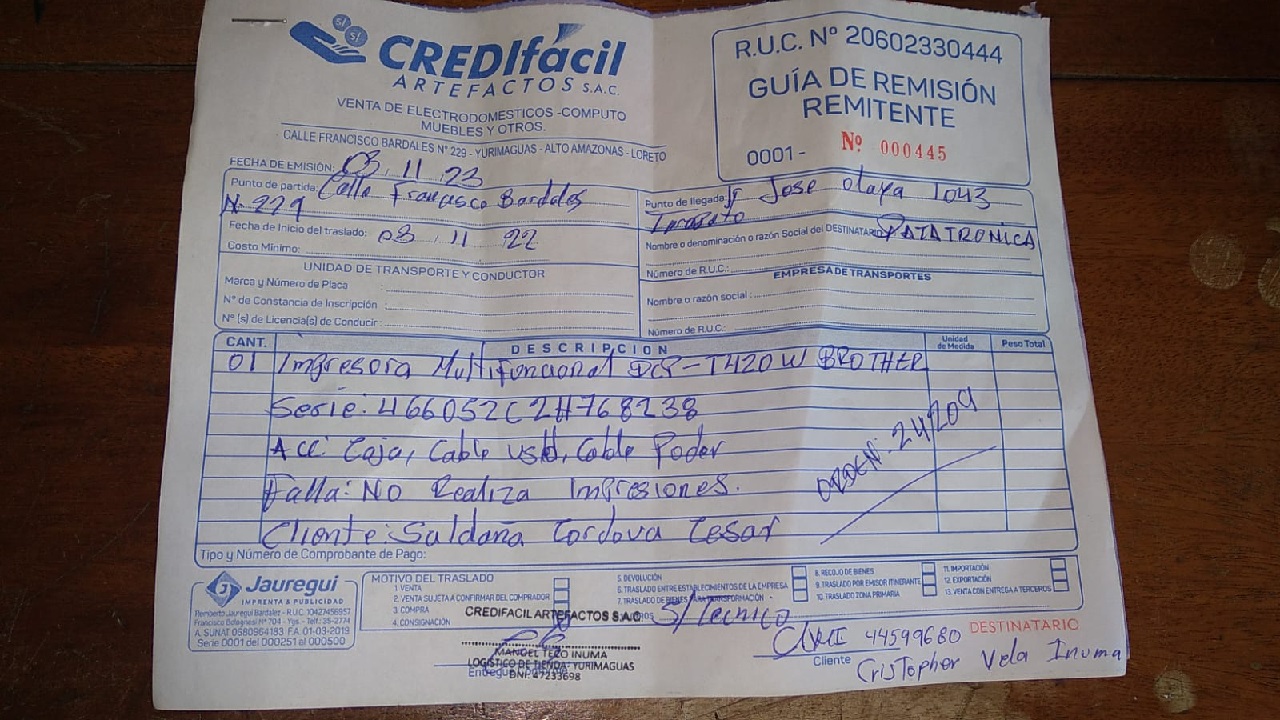 CREDIfácil
ARTEFACTOS S.A.C.
VENTA DE ELECTRODOMESTICOS - COMPUTO
MUEBLES Y OTROS.
CALLE FRANCISCO BARDALES N° 229 - YURIMAGUAS - ALTO AMAZONAS - LORETO
R.U.C. N° 20602330444
GUÍA DE REMISIÓN
REMITENTE
0001- Nº 000445
FECHA DE EMISIÓN: 03 . 11 . 23
Punto de partida: Calle Francisco Bardales
N° 229
Fecha de Inicio del traslado: 03 . 11 22
Costo Mínimo:
Punto de llegada: Jr Jose olaya 1043
Tarapoto
Nombre o denominación o razón Social del DESTINATARIO: DATATRONICA
Número de R.U.C.:
UNIDAD DE TRANSPORTE Y CONDUCTOR
Marca y Número de Placa
N° de Constancia de Inscripción
N° (s) de Licencia(s) de Conducir:
EMPRESA DE TRANSPORTES
Nombre o razón social:
Número de R.U.C.:
CANT. DESCRIPCION Unidad de Medida Peso Total
01 Impresora Multifuncional DCP-T420W BROTHER
Serie: U66052C2H768238
Acc: Caja, Cable USB, Cable Poder
Falla: No Realiza Impresiones.
ORDEN: 24209
Cliente: Saldaña Cordova Cesar
Tipo y Número de Comprobante de Pago:
Jauregui
IMPRENTA & PUBLICIDAD
A. SUNAT 0580964183 FA. 01-03-2019
Serie 0001 del 000251 al 000500
MOTIVO DEL TRASLADO
1. VENTA
2. VENTA SUJETA A CONFIRMAR DEL COMPRADOR
3. COMPRA
4. CONSIGNACIÓN
5. DEVOLUCIÓN
6. TRASLADO ENTRE ESTABLECIMIENTOS DE LA EMPRESA
7. TRASLADO DE BIENES PARA TRANSFORMACIÓN
8. RECOJO DE BIENES
9. TRASLADO POR EMISOR ITINERANTE
10. TRASLADO ZONA PRIMARIA
11. IMPORTACIÓN
12. EXPORTACIÓN
13. VENTA CON ENTREGA A TERCEROS
S/Tecnico
CREDIFACIL ARTEFACTOS S.A.C
MANUEL TEZO INUMA
LOGISTICO DE TIENDA- YURIMAGUAS
DNI: 47233698
44599680
DESTINATARIO
Cliente
Cristopher Vela Inuma